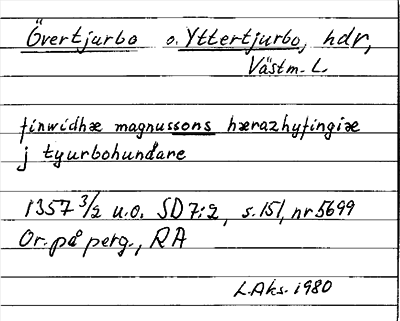 Övertjurbo o. Yttertjurbo, hdr,
Västm. L.
finwidhæ magnussons hærazhyfingiæ
j tyurbohundare
1357 3/2 u.o. SD 7:2, s. 151, nr 5699
Or. på perg., RA
L.Aks. 1980